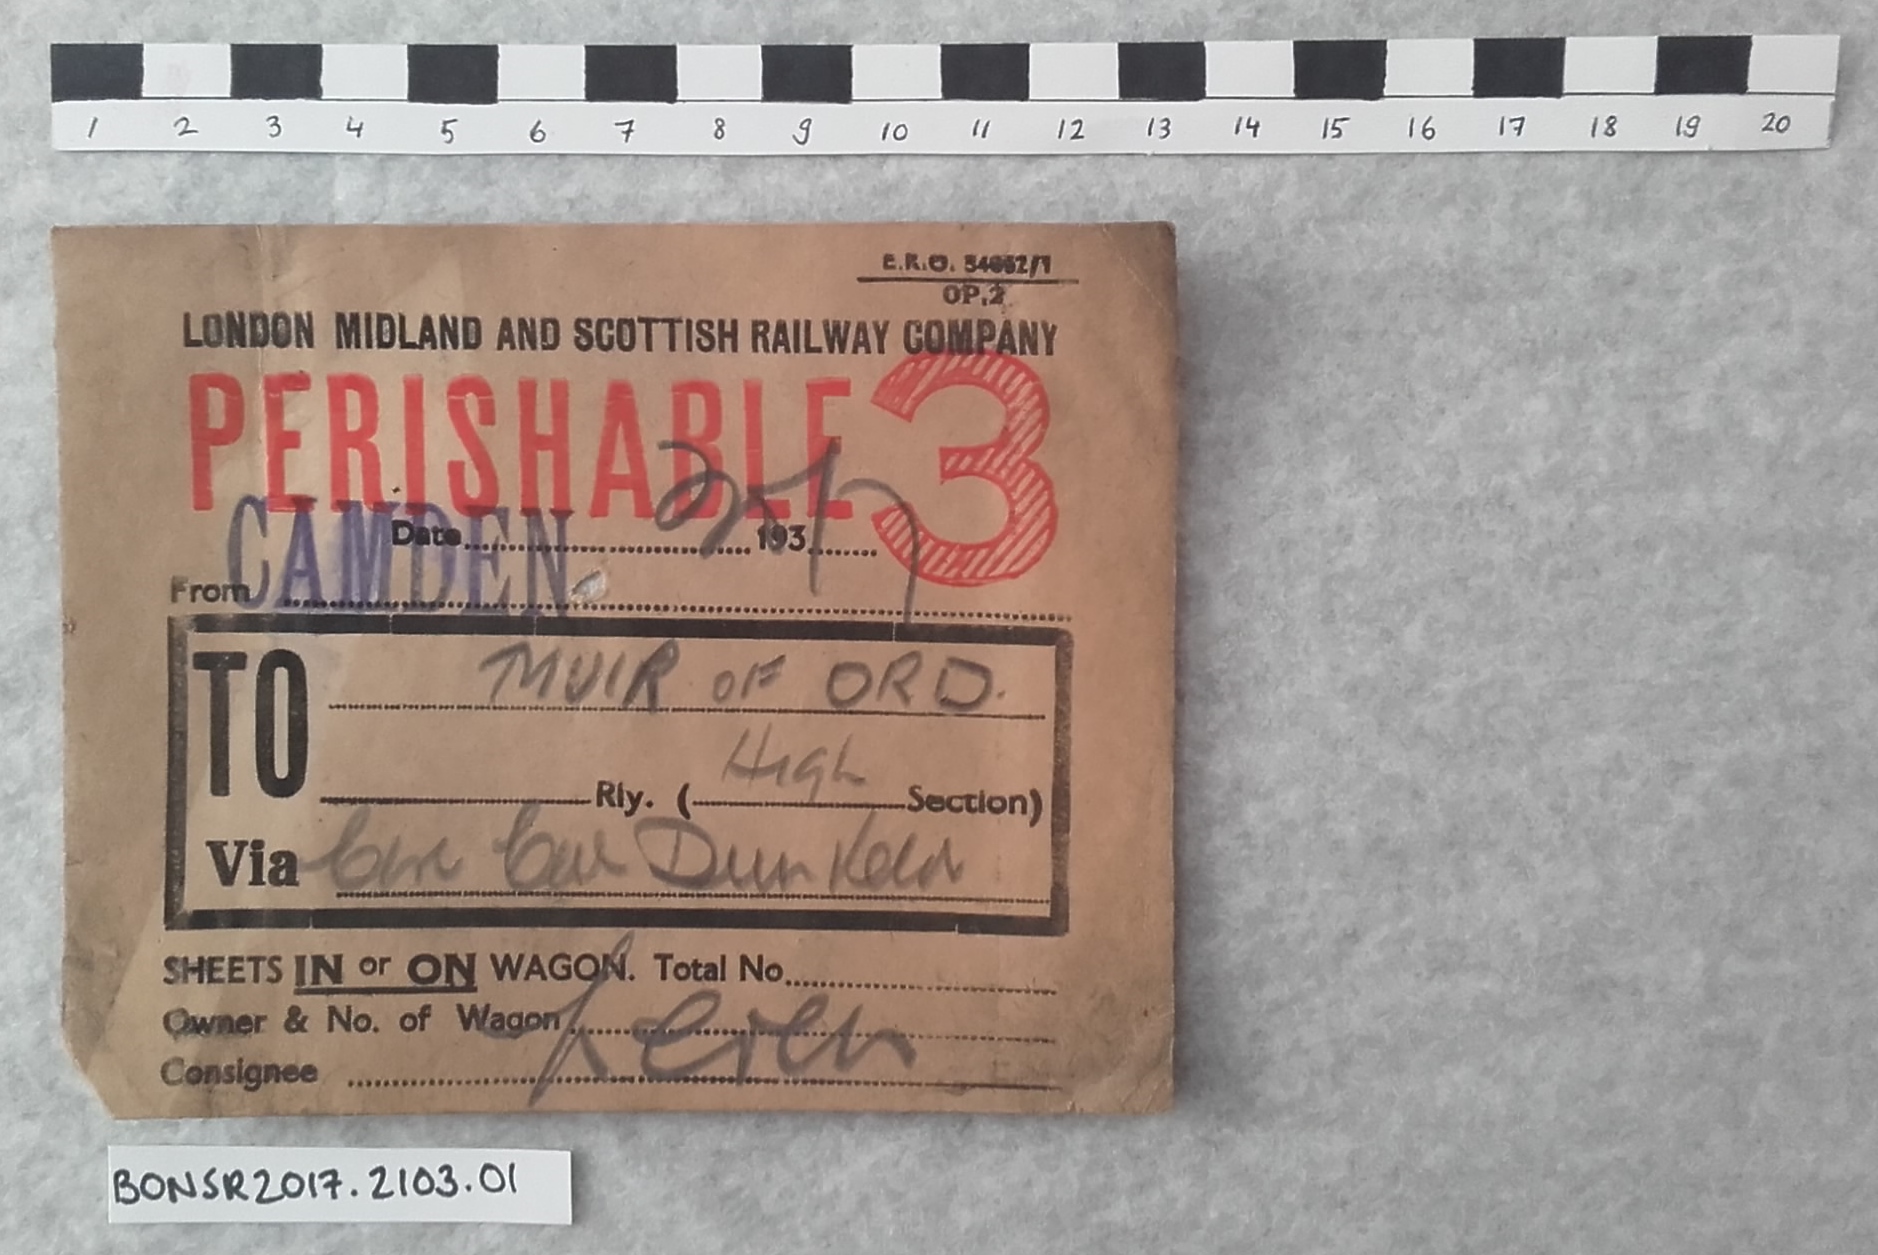 1 2 3 4 5 6 7 8 9 10 11 12 13 14 15 16 17 18 19 20
E.R.O. 54052/1
OP.2
LONDON MIDLAND AND SCOTTISH RAILWAY COMPANY
PERISHABLE 3
Date 193
From CAMDEN
TO MUIR OF ORD.
Rly. (High Section)
Via Dunkeld
SHEETS IN or ON WAGON. Total No.
Owner & No. of Wagon
Consignee
BONSR2017.2103.01